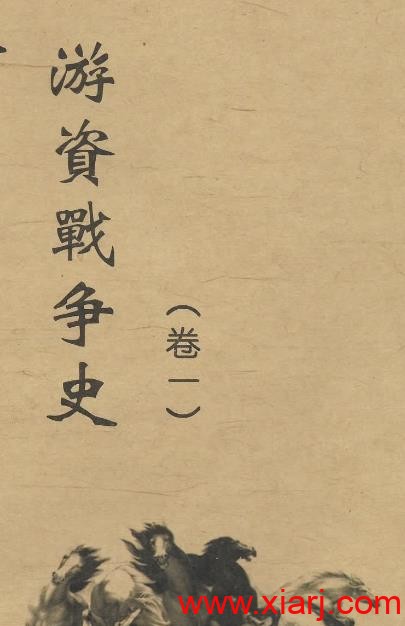 游資戰争史
（卷一）
www.xiarj.com